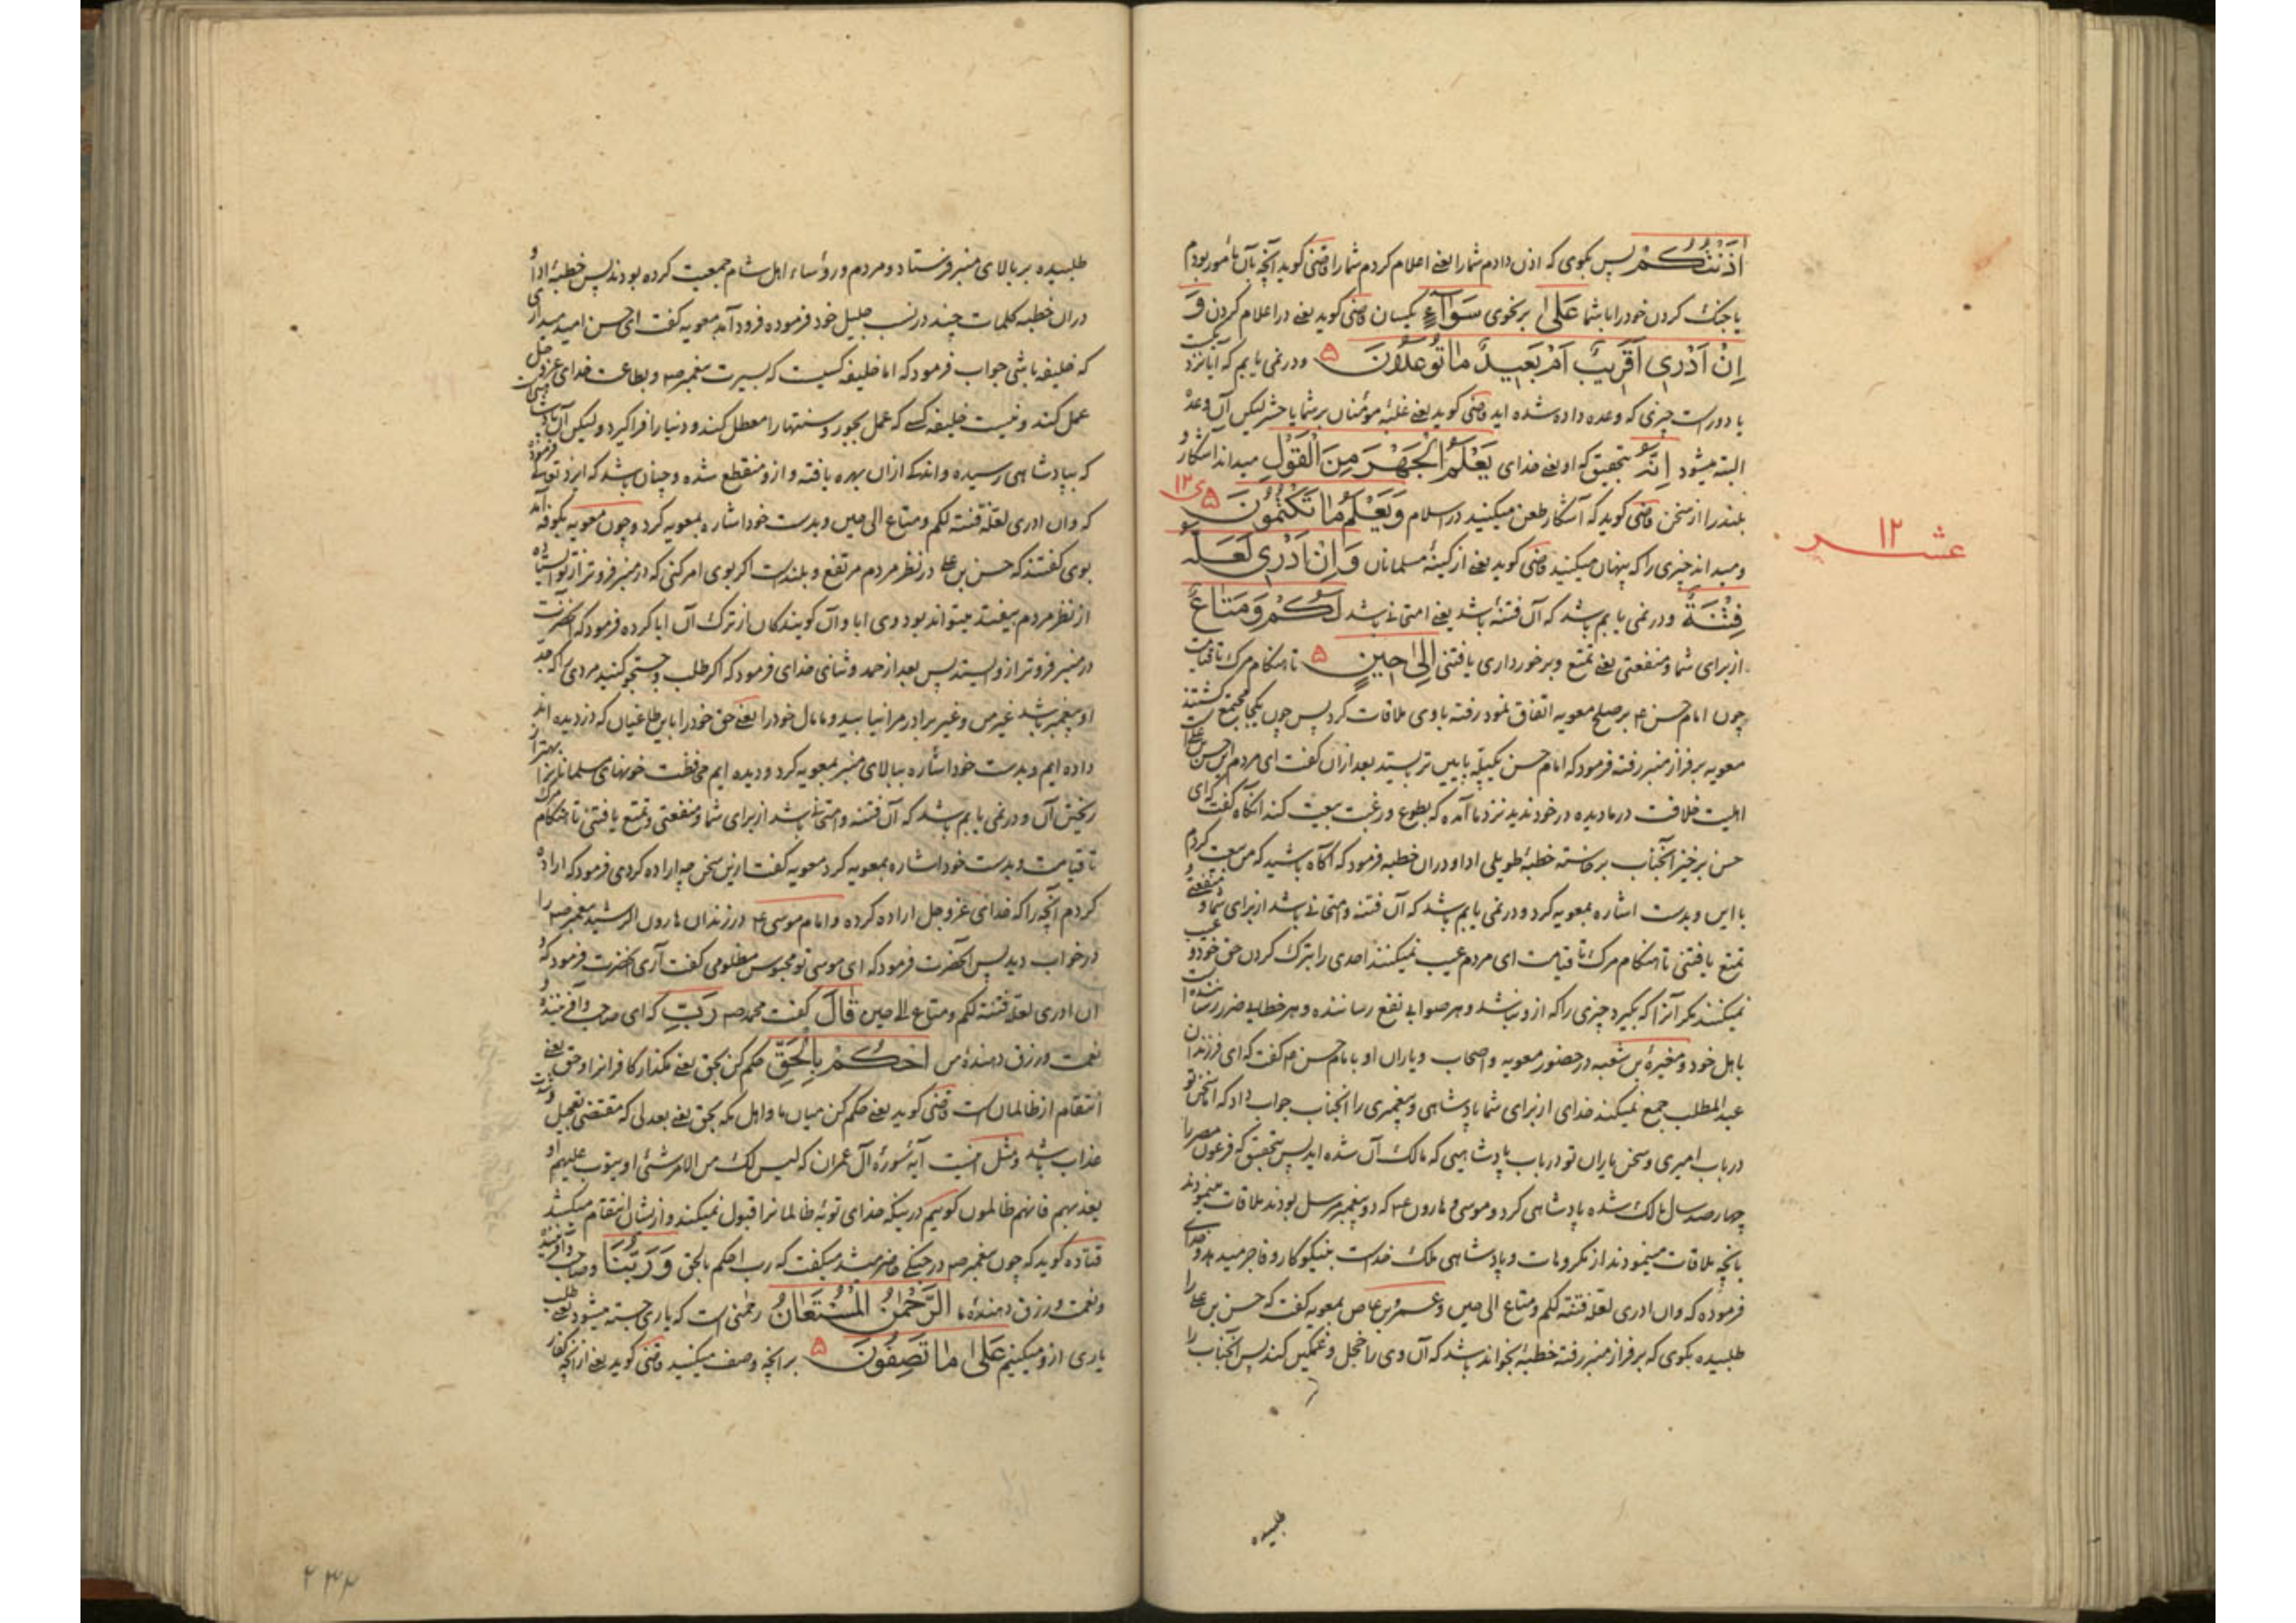 اٰذَنْتُكُمْ پس بکوی که اذن دادم شما را یعنی اعلام کردم شما را قاضی کوید آنچه بآن مأمور بودم
یا جنک کردن خود را با شما عَلىٰ برنحوی سَوَآءٍ یکسان قاضی کوید یعنی در اعلام کردن وَ
اِنْ اَدْرِي اَقَرِيبٌ اَمْ بَعِيدٌ مَا تُوعَدُونَ ۵ و در نمی یابم که آیا نزدیکست
یا دور است چیزی که وعده داده شده اید قاضی کوید یعنی غلبهٔ مؤمنان بر شما یا حشر لیکن آن وعده
البته میشود اِنَّهُ بتحقیق که او یعنی خدای يَعْلَمُ الْجَهْرَ مِنَ الْقَوْلِ میداند آشکار و
بلند را از سخن قاضی کوید که آشکار طعن میکنید در اسلام وَيَعْلَمُ مَا تَكْتُمُونَ ۵
و میداند چیزی را که پنهان میکنید قاضی کوید یعنی از کینهٔ مسلمانان وَاِنْ اَدْرِي لَعَلَّهُ
عشر ۱۲
فِتْنَةٌ و در نمی یابم باشد که آن فتنه باشد یعنی امتحانی باشد لَكُمْ وَمَتَاعٌ
از برای شما و منفعتی یعنی تمتع و برخورداری یافتنی اِلىٰ حِينٍ ۵ تا هنکام مرک تا قیامت
چون امام حسن ع بر صلح معویه اتفاق نمود رفته با وی ملاقات کرد پس چون یکجا مجتمع کشتند
معویه بر فراز منبر رفته فرمود که امام حسن یکپله پایین تر بیستد بعد از ان کفت ای مردم این حسن بن علی است
اهلیت خلافت در ما دیده در خود ندید نزد ما آمده که بطوع و رغبت بیعت کند انکاه کفت که ای
حسن برخیز آنجناب برخاسته خطبهٔ طویلی ادا و در ان خطبه فرمود که آکاه باشید که من بیعت کردم
با این و بدست اشاره بمعویه کرد و در نمی یابم باشد که آن فتنه و امتحانی باشد از برای شما و منفعتی و
تمتع یافتنی تا هنکام مرک تا قیامت ای مردم عیب نمیکنند احدی را بترک کردن حق خود و عیب
نمیکنند مکر آنرا که بکیرد چیزی را که از و نباشد و هر صوابی نفع رساننده و هر خطایی ضرر رساننده است
باهل خود و مغیرهٔ بن شعبه در حضور معویه و اصحاب و یاران او بامام حسن ع کفت که ای فرزندان
عبد المطلب جمع نمیکند خدای از برای شما پادشاهی و پیغمبری را آنجناب جواب داد که اما سخن تو
در باب امیری و سخن یاران تو در باب پادشاهیی که مالک آن شده اید پس بتحقیق که فرعون مصر را
چهار صد سال مالک شده پادشاهی کرد و موسی و هارون ع که دو پیغمبر مرسل بودند ملاقات مینمودند
بانچه ملاقات مینمودند از مکروهات و پادشاهی ملک خداست بنیکوکار و فاجر میدهد و خدای
فرموده که وان ادری لعله فتنة لکم و متاع الی حین و عمرو بن عاص بمعویه کفت که حسن بن علی را
طلبیده بکوی که بر فراز منبر رفته خطبه بخواند باشد که آن وی را خجل و غمکین کند پس آنجناب را
طلبیده
طلبیده بر بالای منبر فرستاد و مردم و رؤساء اهل شام جمعیت کرده بودند پس خطبهٔ ادا و
در ان خطبه کلمات چند در نسب جلیل خود فرموده فرود آمد معویه کفت ای حسن امید میداری
که خلیفه باشی جواب فرمود که اما خلیفه کسیست که بسیرت پیغمبر ص و بطاعت خدای عز و جل
عمل کند و نیست خلیفه کسی که عمل بجور و سنتها را معطل کند و دنیا را فرا کیرد و لیکن آن پادشاهیست
که بپادشاهی رسیده و اندکی از ان بهره یافته و از و منقطع شده و چنان باشد که ایزد تعالی فرموده
که وان ادری لعله فتنة لکم و متاع الی حین و بدست خود اشاره بمعویه کرد و چون معویه بکوفه آمد
بوی کفتند که حسن بن علی در نظر مردم مرتفع و بلند است اکر بوی امر کنی که در منبر فروتر از تو ایستاده
از نظر مردم بیفتد میتواند بود وی ابا و آن کویندکان از ترک آن ابا کرده فرمود که آنحضرت
در منبر فروتر از و ایستد پس بعد از حمد و ثنای خدای فرمود که اکر طلب و جستجو کنید مردی را که جد
او پیغمبر باشد غیر من و غیر برادر مرا نیابید و ما مال خود را یعنی حق خود را باین طاغیان که دزدیده اند
داده ایم و بدست خود اشاره ببالای منبر بمعویه کرد و دیده ایم محافظت خونهای مسلمانان را بهتر از
ریختن آن و در نمی یابم باشد که آن فتنه و امتحانی باشد از برای شما و منفعتی و تمتع یافتنی تا هنکام مرک
تا قیامت و بدست خود اشاره بمعویه کرد معویه کفت ازین سخن چه اراده کردی فرمود که اراده
کردم آنچه را که خدای عز و جل اراده کرده و امام موسی ع در زندان هارون الرشید پیغمبر ص را
در خواب دید پس آنحضرت فرمود که ای موسی تو محبوس مظلومی کفت آری آنحضرت فرمود که و
ان ادری لعله فتنة لکم و متاع الی حین قَالَ کفت محمد ص رَبِّ که ای صاحب و آفریننده و
نعمت و رزق دهندهٔ من احْكُمْ بِالْحَقِّ حکم کن بحق یعنی مکذار کافرانرا و حق یعنی
انتقام از ظالمان است قاضی کوید یعنی حکم کن میان ما و اهل مکه بحق یعنی بعدلی که مقتضی تعجیل
عذاب باشد و مثل اینست آیهٔ سورهٔ آل عمران که لیس لک من الامر شئ او یتوب علیهم او
یعذبهم فانهم ظالمون کوییم در نیکه خدای توبهٔ ظالمانرا قبول نمیکند و ازیشان انتقام میکشد
قتاده کوید که چون پیغمبر ص در جنکی حاضر میشد میکفت که رب احکم بالحق وَرَبُّنَا و صاحب و آفریننده
و نعمت و رزق دهندهٔ ما الرَّحْمٰنُ الْمُسْتَعَانُ رحمنی است که یاری جسته میشود یعنی طلب
یاری از و میکنیم عَلىٰ مَا تَصِفُونَ ۵ بر آنچه وصف میکنید قاضی کوید یعنی از آنچه کفار
۲۳۴